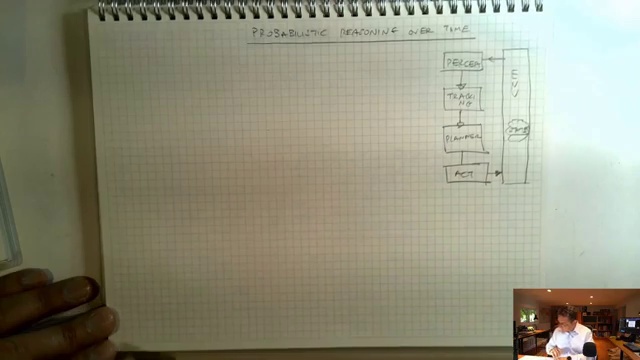 PROBABILISTIC REASONING OVER TIME
PERCEP
ENV
TRACKI
NG
PLANNER
ACT